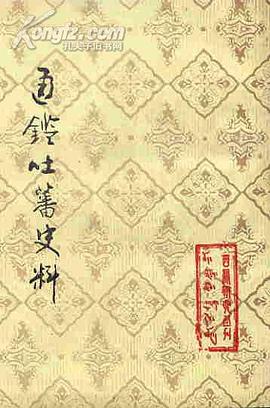 Kongfz.com
孔夫子旧书网
通鑑吐蕃史料